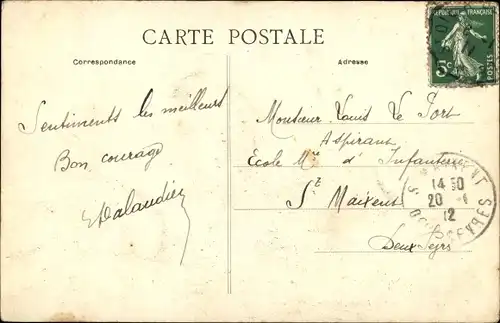 CARTE POSTALE
Correspondance
Adresse
REPUBLIQUE FRANÇAISE
5c
POSTES
Sentiments les meilleurs
Bon courage
Monsieur Louis Le Fort
Aspirant
Ecole Mre d'Infanterie
St Maixent
Deux Sèvres
14 30
20 - 1
12
SEVRES